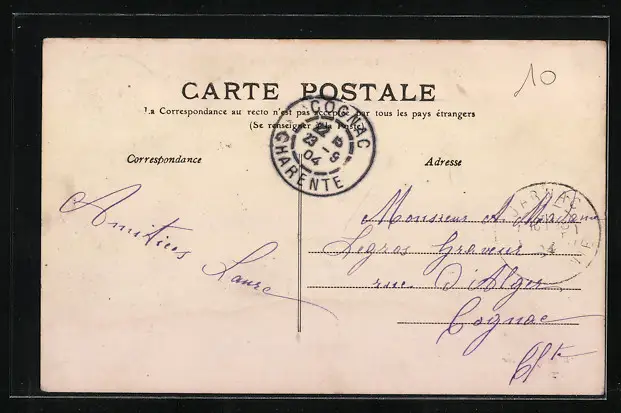 10
CARTE POSTALE
La Correspondance au recto n'est pas acceptée par tous les pays étrangers
(Se renseigner à la Poste)
COGNAC
23 -9
04
CHARENTE
Correspondance
Adresse
JARNAC
Amitiés
Laure
Monsieur A Madame
Legros Graveur
rue d'Alger
Cognac
Chte